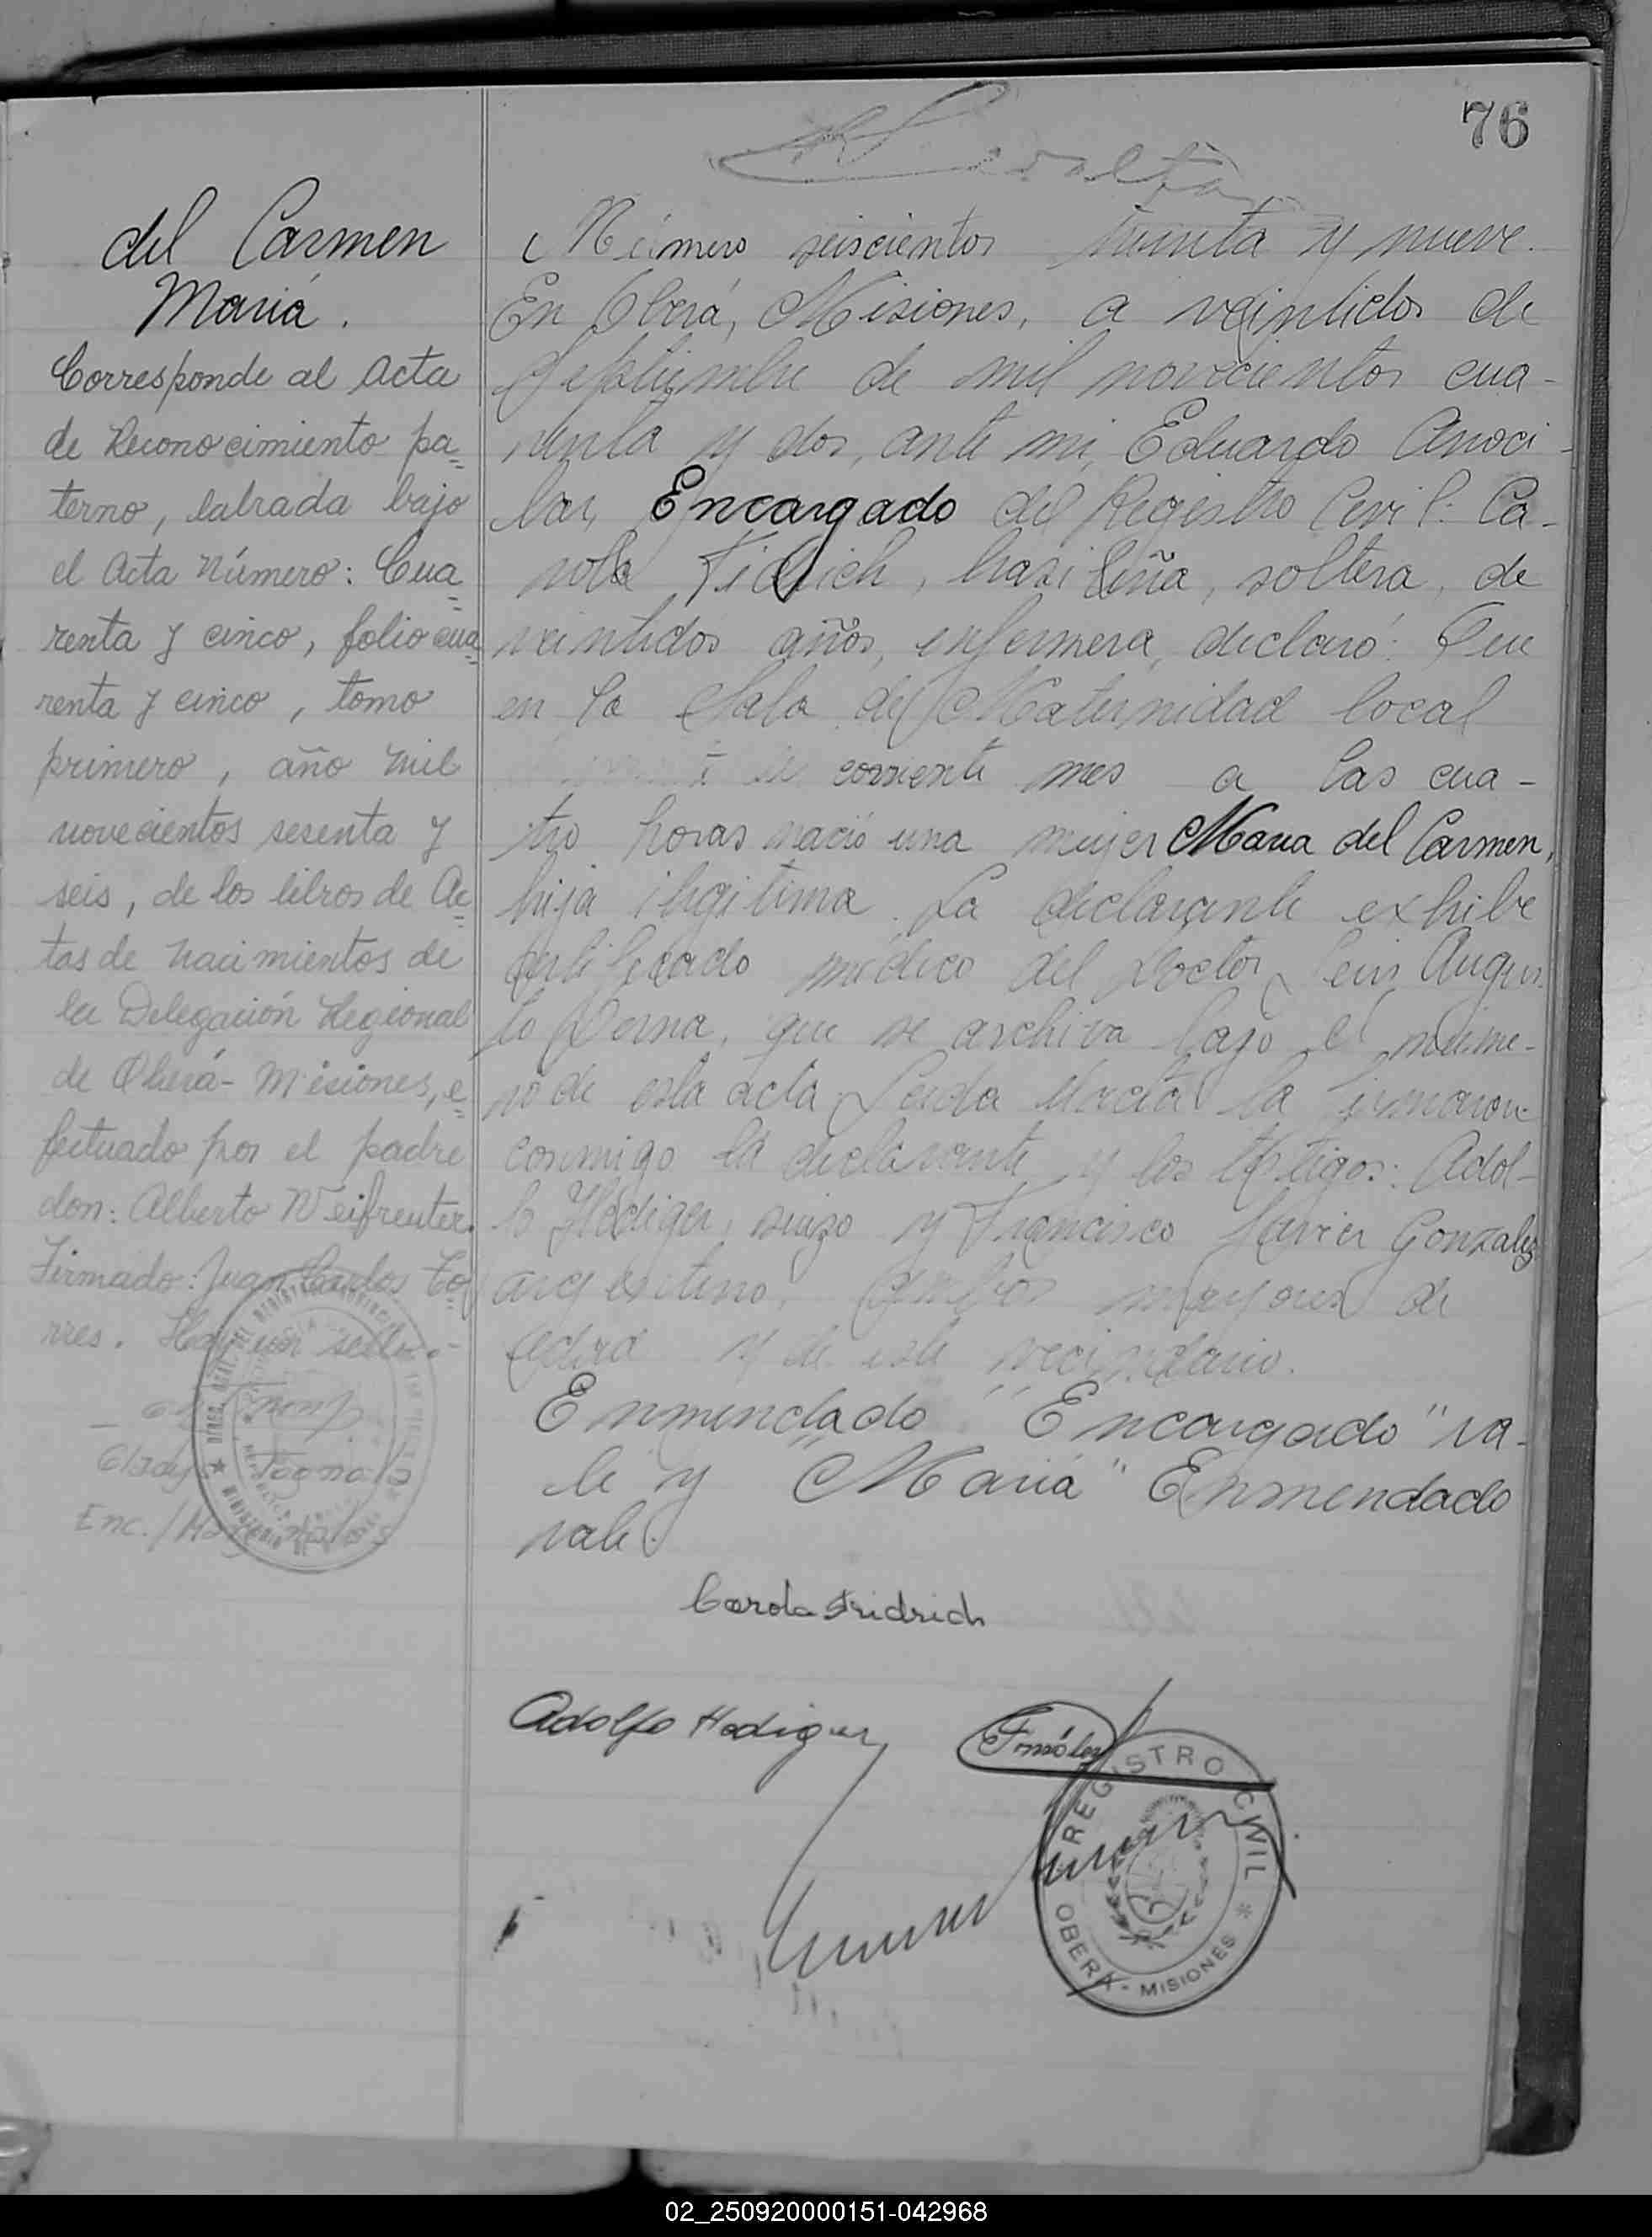 76
Peralta
del Carmen
Maria.
Corresponde al Acta
de Reconocimiento pa=
terno, labrada bajo
el Acta Número: Cua=
renta y cinco, folio cua=
renta y cinco, tomo
primero, año mil
novecientos sesenta y
seis, de los libros de Ac=
tas de nacimientos de
la Delegación Regional
de Oberá- Misiones, e=
fectuado por el padre
don: Alberto Weifreuter.
Firmado: Juan Carlos To=
rres. Hay un sello.-
Gladys
Enc./
Número seiscientos treinta y nueve.
En Oberá, Misiones, a veintidos de
Septiembre de mil novecientos cua-
renta y dos, ante mi, Eduardo Anoci-
bar, Encargado del Registro Civil: Ca-
rola Fidrich, brasileña, soltera, de
veintidos años, enfermera, declaró: Que
en la Sala de Maternidad local
corriente mes a las cua-
tro horas nació una mujer Maria del Carmen,
hija ilegitima. La declarante exhibe
certificado médico del Doctor Luis Augus-
to Derna, que se archiva bajo el núme-
ro de esta acta. Leida el acta la firmaron
conmigo la declarante y los testigos: Adol-
fo Hediger, suizo y Francisco Javier Gonzalez
argentino, ambos mayores de
edad y de este vecindario.
Enmendado "Encargado" va-
le y "Maria" Enmendado
vale.
Carola Fridrich
Adolfo Hediger
REGISTRO CIVIL
OBERÁ - MISIONES *
02_250920000151-042968